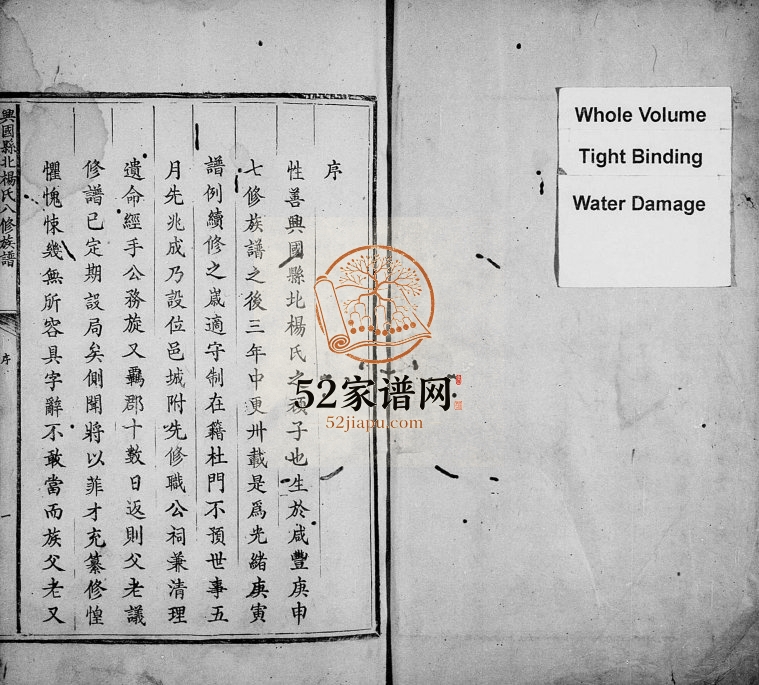 序
性善興國縣北楊氏之頑子也生於咸豐庚申
七修族譜之後三年中更卅載是爲光緒庚寅
譜例續修之歲適守制在籍杜門不預世事五
月先兆成乃設位邑城附先修職公祠兼清理
遺命經手公務旋又羈郡十數日返則父老議
修譜已定期設局矣側聞將以菲才充纂修惶
懼愧悚幾無所容具字辭不敢當而族父老又
興國縣北楊氏八修族譜
序
一
52家谱网
52jiapu.com
Whole Volume
Tight Binding
Water Damage